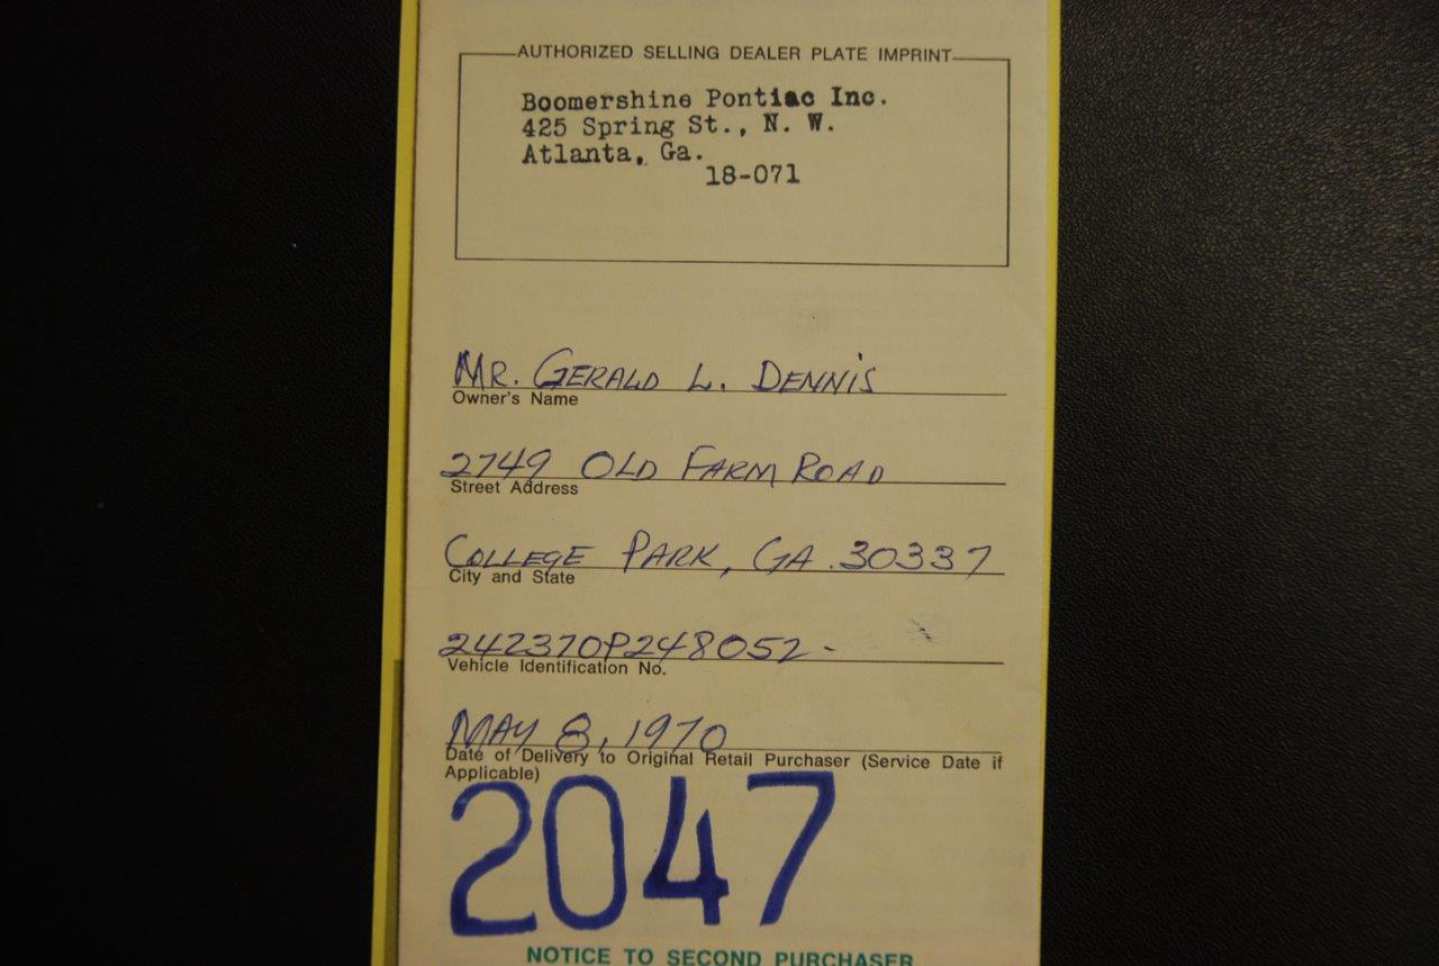 AUTHORIZED SELLING DEALER PLATE IMPRINT
Boomershine Pontiac Inc.
425 Spring St., N. W.
Atlanta, Ga.
18-071
MR. GERALD L. DENNIS
Owner's Name
2749 OLD FARM ROAD
Street Address
COLLEGE PARK, GA. 30337
City and State
242370P248052-
Vehicle Identification No.
MAY 8, 1970
Date of Delivery to Original Retail Purchaser (Service Date if
Applicable)
2047
NOTICE TO SECOND PURCHASER